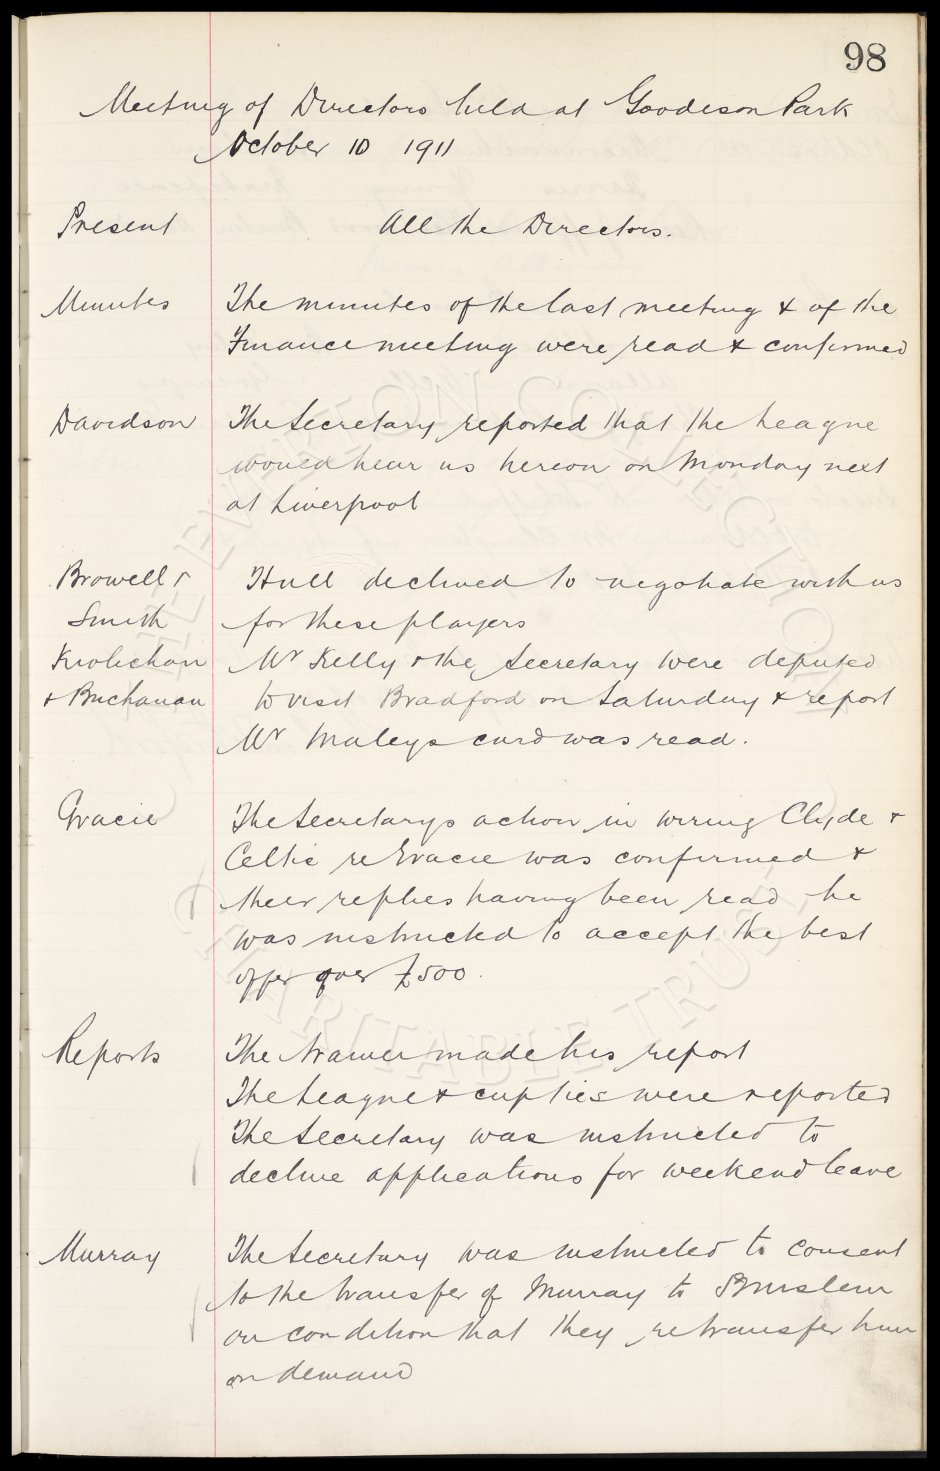 98
Meeting of Directors held at Goodison Park
October 10 1911
Present All the Directors.
Minutes The minutes of the last meeting & of the
Finance meeting were read & confirmed
Davidson The Secretary reported that the League
would hear us hereon on Monday next
at Liverpool
Browell & Hull declined to negotiate with us
Smith for these players
Kirolichan Mr Kelly & the Secretary were deputed
& Buchanan to visit Bradford on Saturday & report
Mr Maleys card was read.
Gracie The Secretarys action in wiring Clyde &
Celtic re Gracie was confirmed &
their replies having been read he
was instructed to accept the best
offer over £500.
Reports The trainer made his report
The League & cupties were reported
The Secretary was instructed to
decline applications for weekend leave
Murray The Secretary was instructed to consent
to the transfer of Murray to Burslem
on condition that they retransfer him
on demand
THE EVERTON COLLECTION
CHARITABLE TRUST